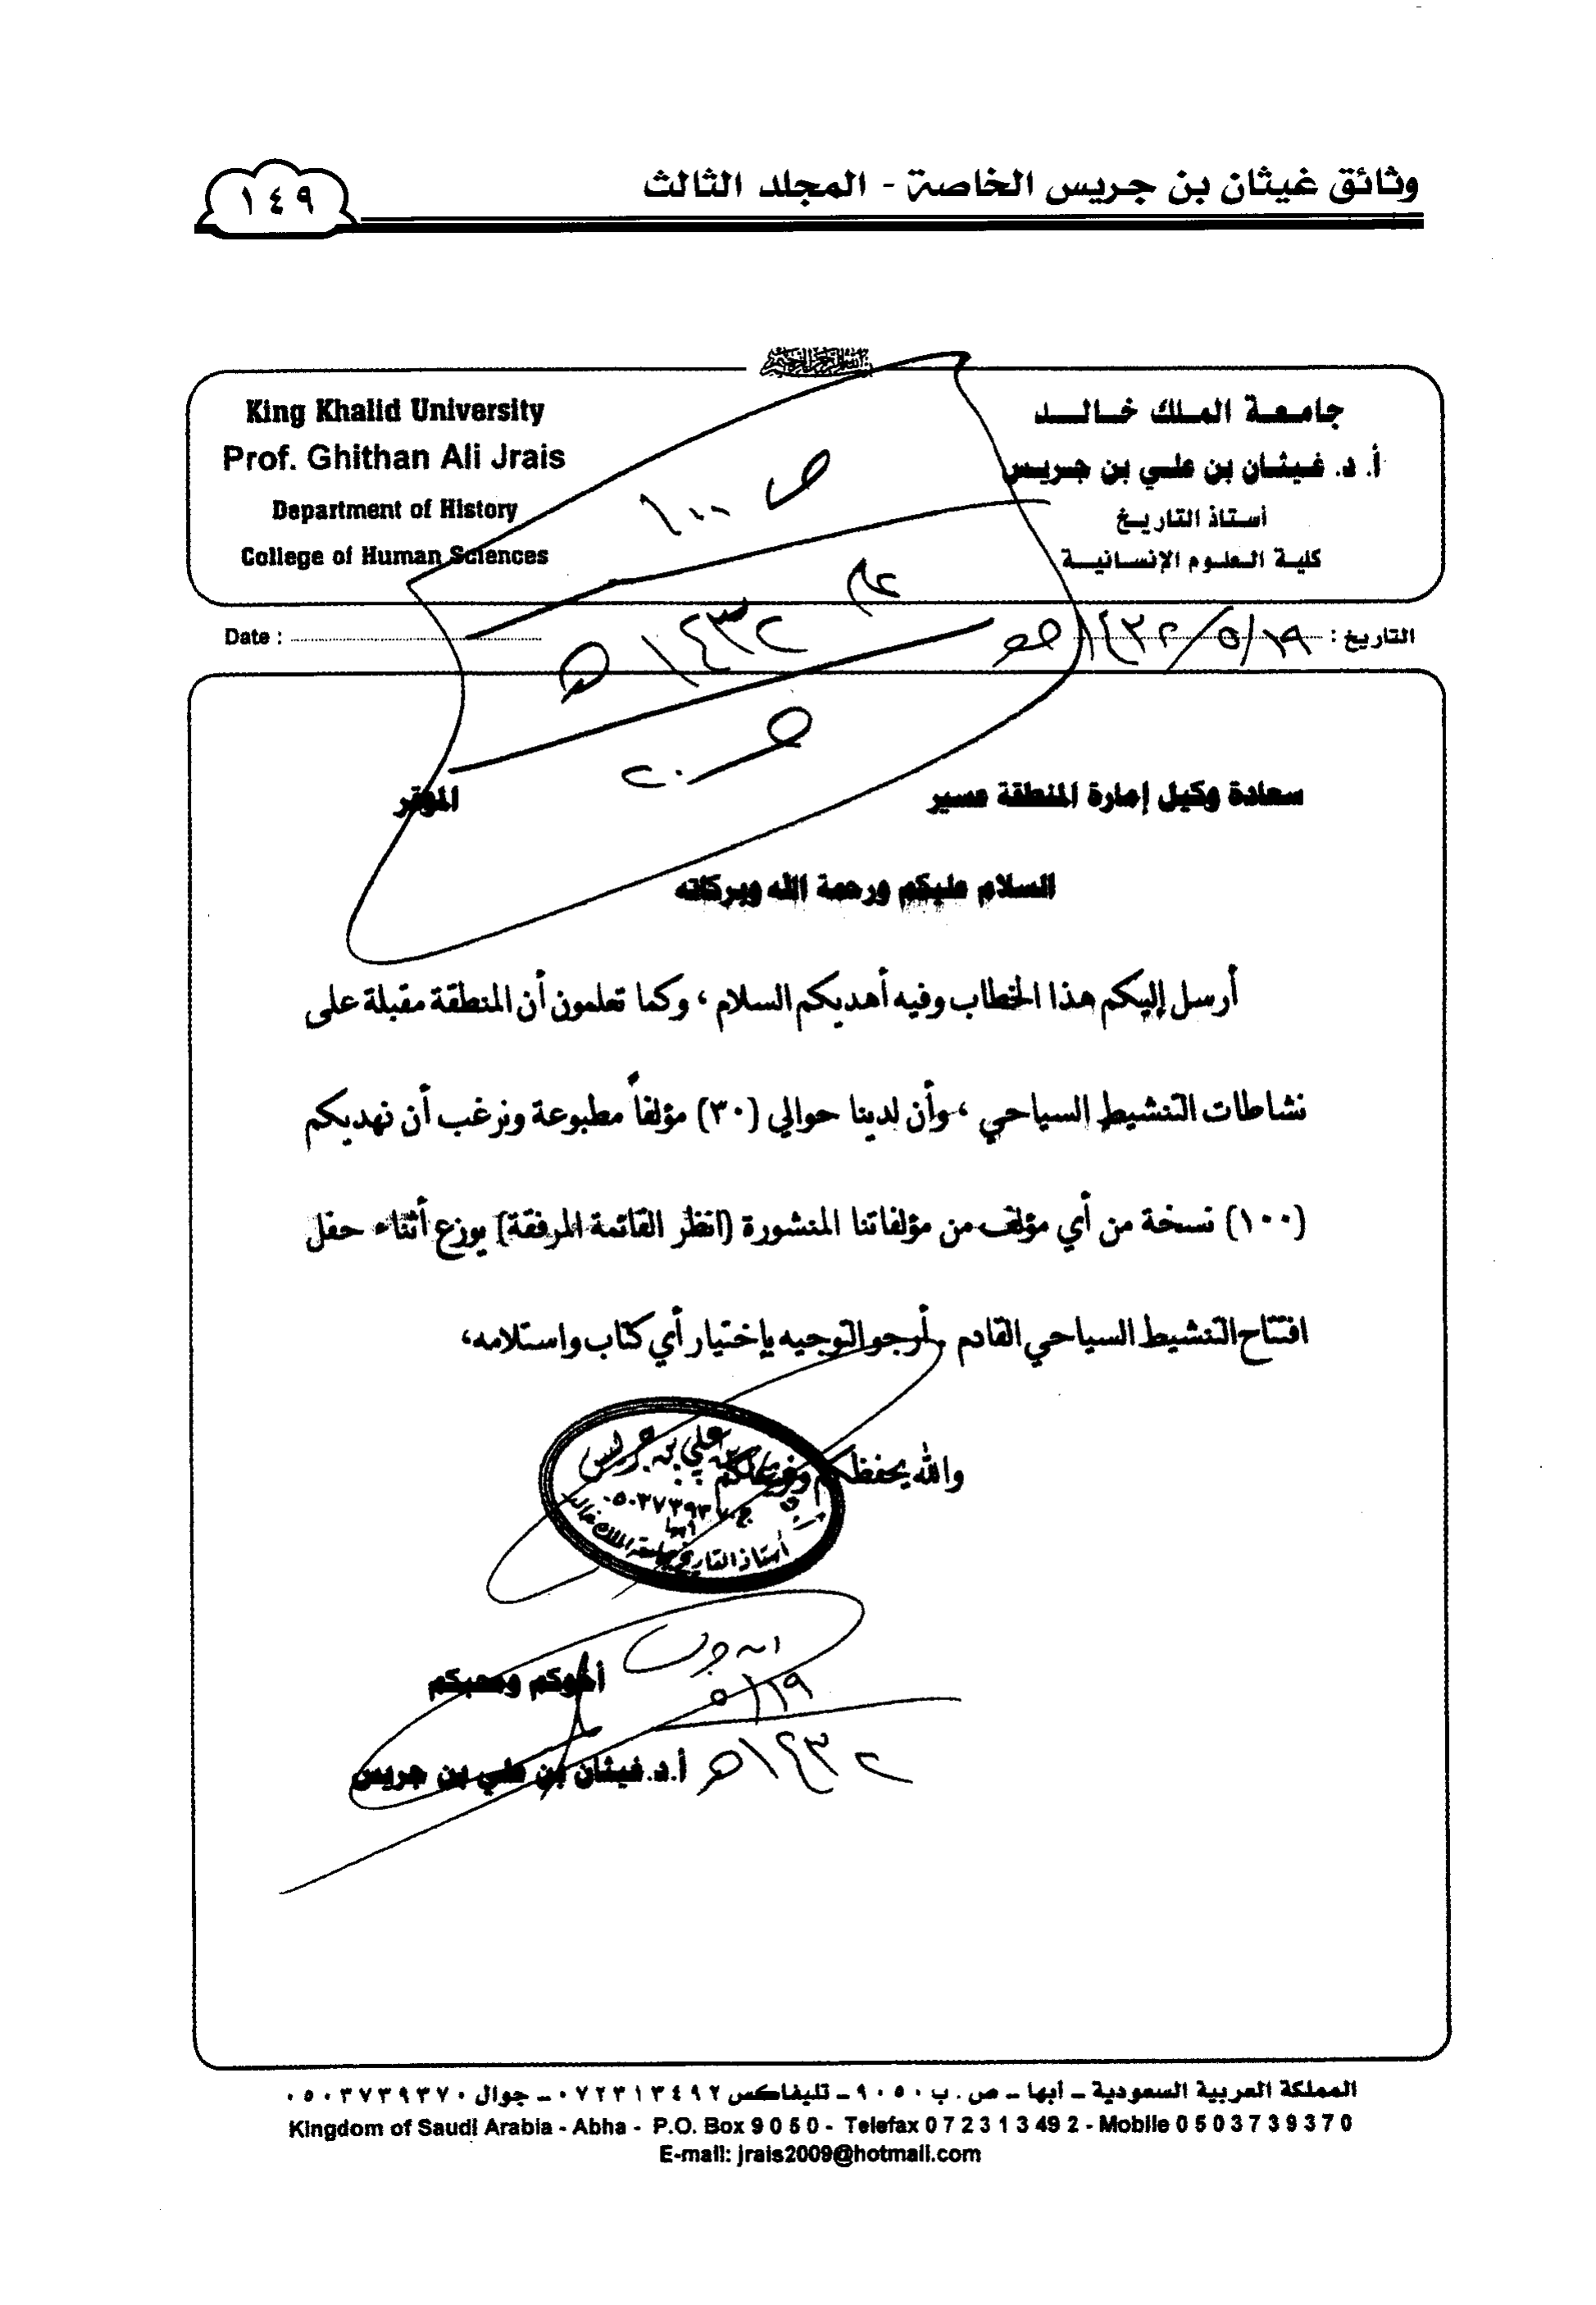 وثائق غيثان بن جريس الخاصة - المجلد الثالث
١٤٩
جامعة الملك خالد
أ. د. غيثان بن علي بن جريس
أستاذ التاريخ
كلية العلوم الإنسانية
King Khalid University
Prof. Ghithan Ali Jrais
Department of History
College of Human Sciences
ص ١٠٠
١٤٣٢ هـ
التاريخ : ١٩/٥/١٤٣٢ هـ
Date :
سعادة وكيل إمارة المنطقة عسير الموقر
السلام عليكم ورحمة الله وبركاته
أرسل إليكم هذا الخطاب وفيه أهديكم السلام ، وكما تعلمون أن المنطقة مقبلة على
نشاطات التنشيط السياحي ، وأن لدينا حوالي (٣٠) مؤلفاً مطبوعة ونرغب أن نهديكم
(١٠٠) نسخة من أي مؤلف من مؤلفاتنا المنشورة (انظر القائمة المرفقة) يوزع أثناء حفل
افتتاح التنشيط السياحي القادم . أرجو التوجيه بإختيار أي كتاب واستلامه،
والله يحفظكم ويرعاكم
علي بن جريس
ج ٠٥٠٣٧٣٩٣٧٠
أبها
أستاذ التاريخ بجامعة الملك خالد
ابن جريس
١٩/٥
١٤٣٢ هـ
أخوكم ومحبكم
أ.د. غيثان بن علي بن جريس
المملكة العربية السعودية – أبها – ص . ب ٩٠٥٠ – تليفاكس ٠٧٢٣١٣٤٩٢ – جوال ٠٥٠٣٧٣٩٣٧٠
Kingdom of Saudi Arabia - Abha - P.O. Box 9 0 5 0 - Telefax 0 7 2 3 1 3 49 2 - Mobile 0 5 0 3 7 3 9 3 7 0
E-mail: jrais2009@hotmail.com